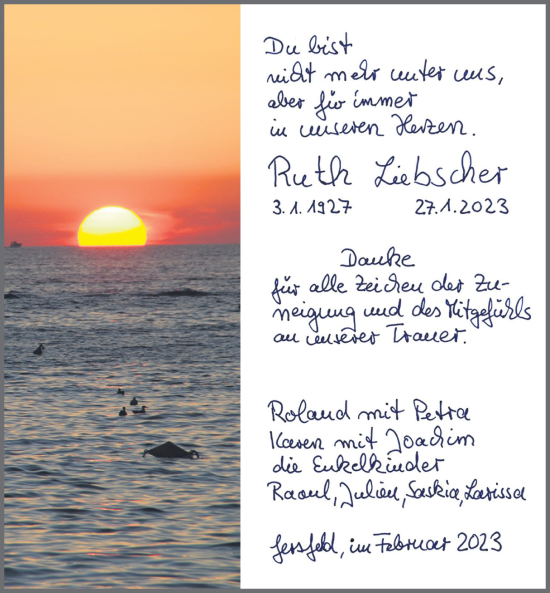 Du bist
nicht mehr unter uns,
aber für immer
in unseren Herzen.
Ruth Liebscher
3. 1. 1927 27.1.2023
Danke
für alle Zeichen der Zu-
neigung und des Mitgefühls
an unserer Trauer.
Roland mit Petra
Karen mit Joachim
die Enkelkinder
Raoul, Julien, Saskia, Larissa
Gersfeld, im Februar 2023